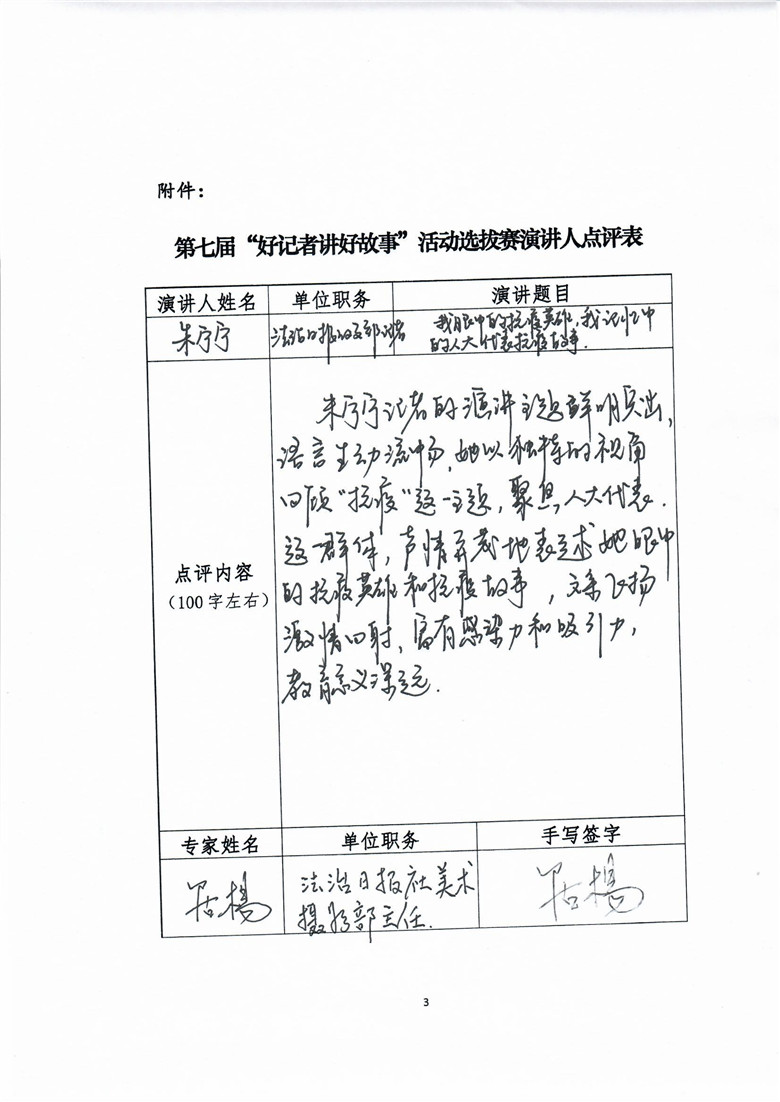 附件：
第七届“好记者讲好故事”活动选拔赛演讲人点评表
演讲人姓名 单位职务 演讲题目
朱宁宁 法治日报政部记者 我眼中的抗疫英雄，我记忆中
的人大代表抗疫故事．
点评内容
（100字左右）
朱宁宁记者的演讲主题鲜明突出，
语言生动流畅，她以独特的视角
回顾“抗疫”这一主题，聚焦人大代表
这一群体，声情并茂地表述她眼中
的抗疫英雄和抗疫故事，文采飞扬
激情四射，富有感染力和吸引力，
教育意义深远．
专家姓名 单位职务 手写签字
居杨 法治日报社美术
摄影部主任． 居杨
3